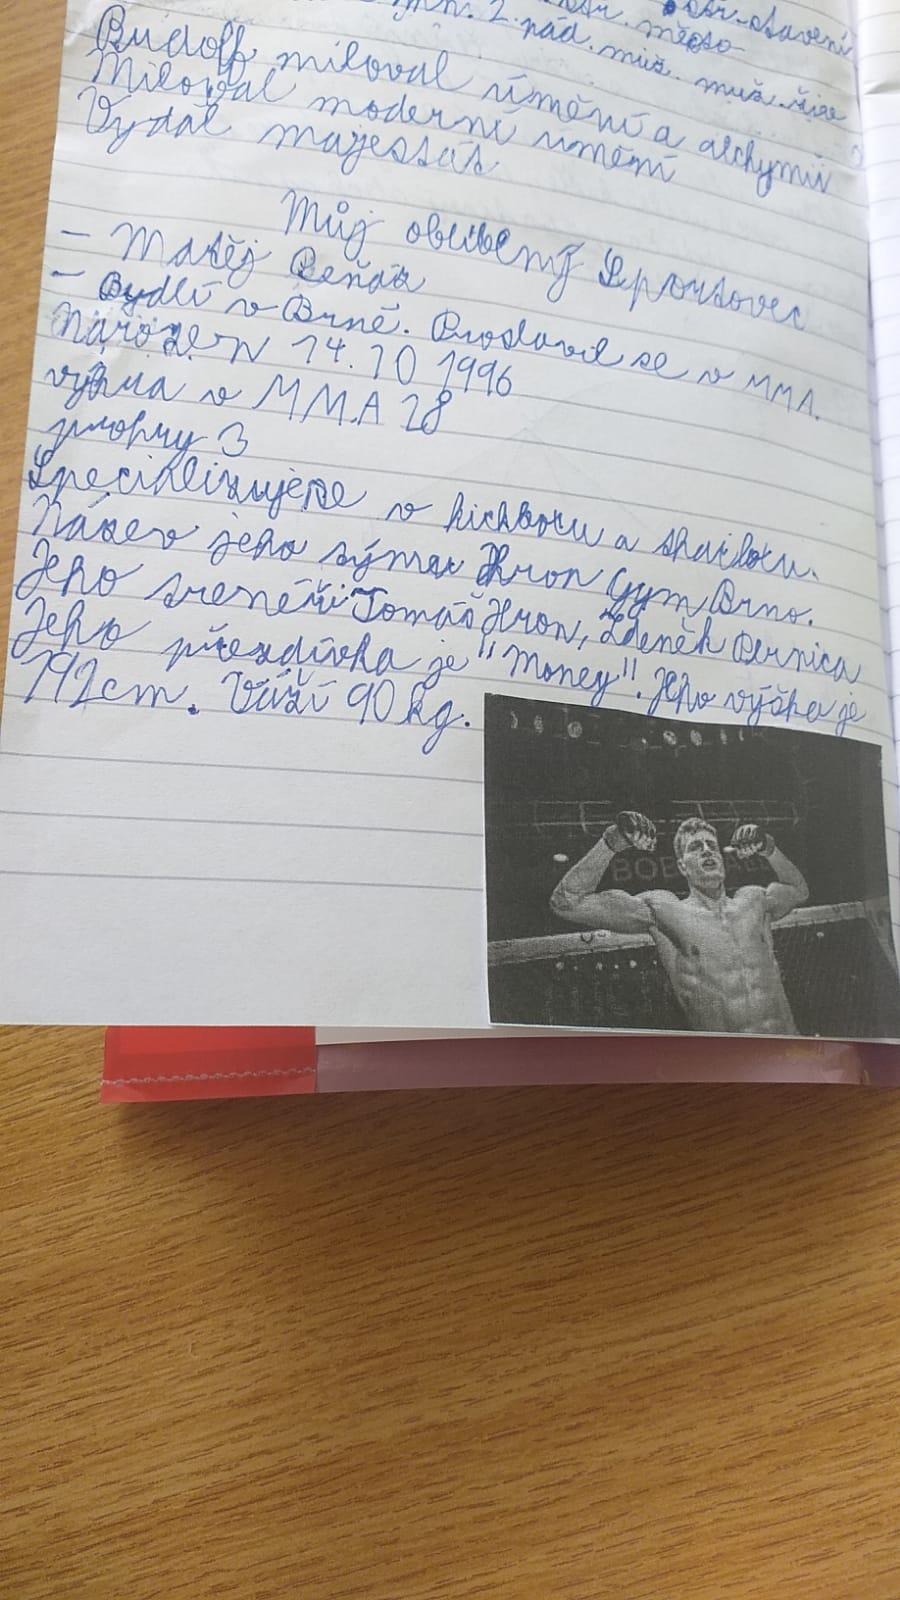 mn. 2. pád. muž. muž. říše
stř. město
stř. stavení
Rudolf miloval úmění a alchymii
Miloval moderní umění
Vydal majestát
Můj oblíbený Sportovec
- Matěj Peňáz
- Bydlí v Brně. Proslavil se v MMA.
Narozen 14.10 1996
výhra v MMA 28
prohry 3
Specializuje se v kickboxu a thaiboxu.
Název jeho týmu Hron Gym Brno.
Jeho trenéři Tomáš Hron, Zdeněk Pernica
Jeho přezdívka je "Money". Jeho výška je
192cm. Váží 90 kg.